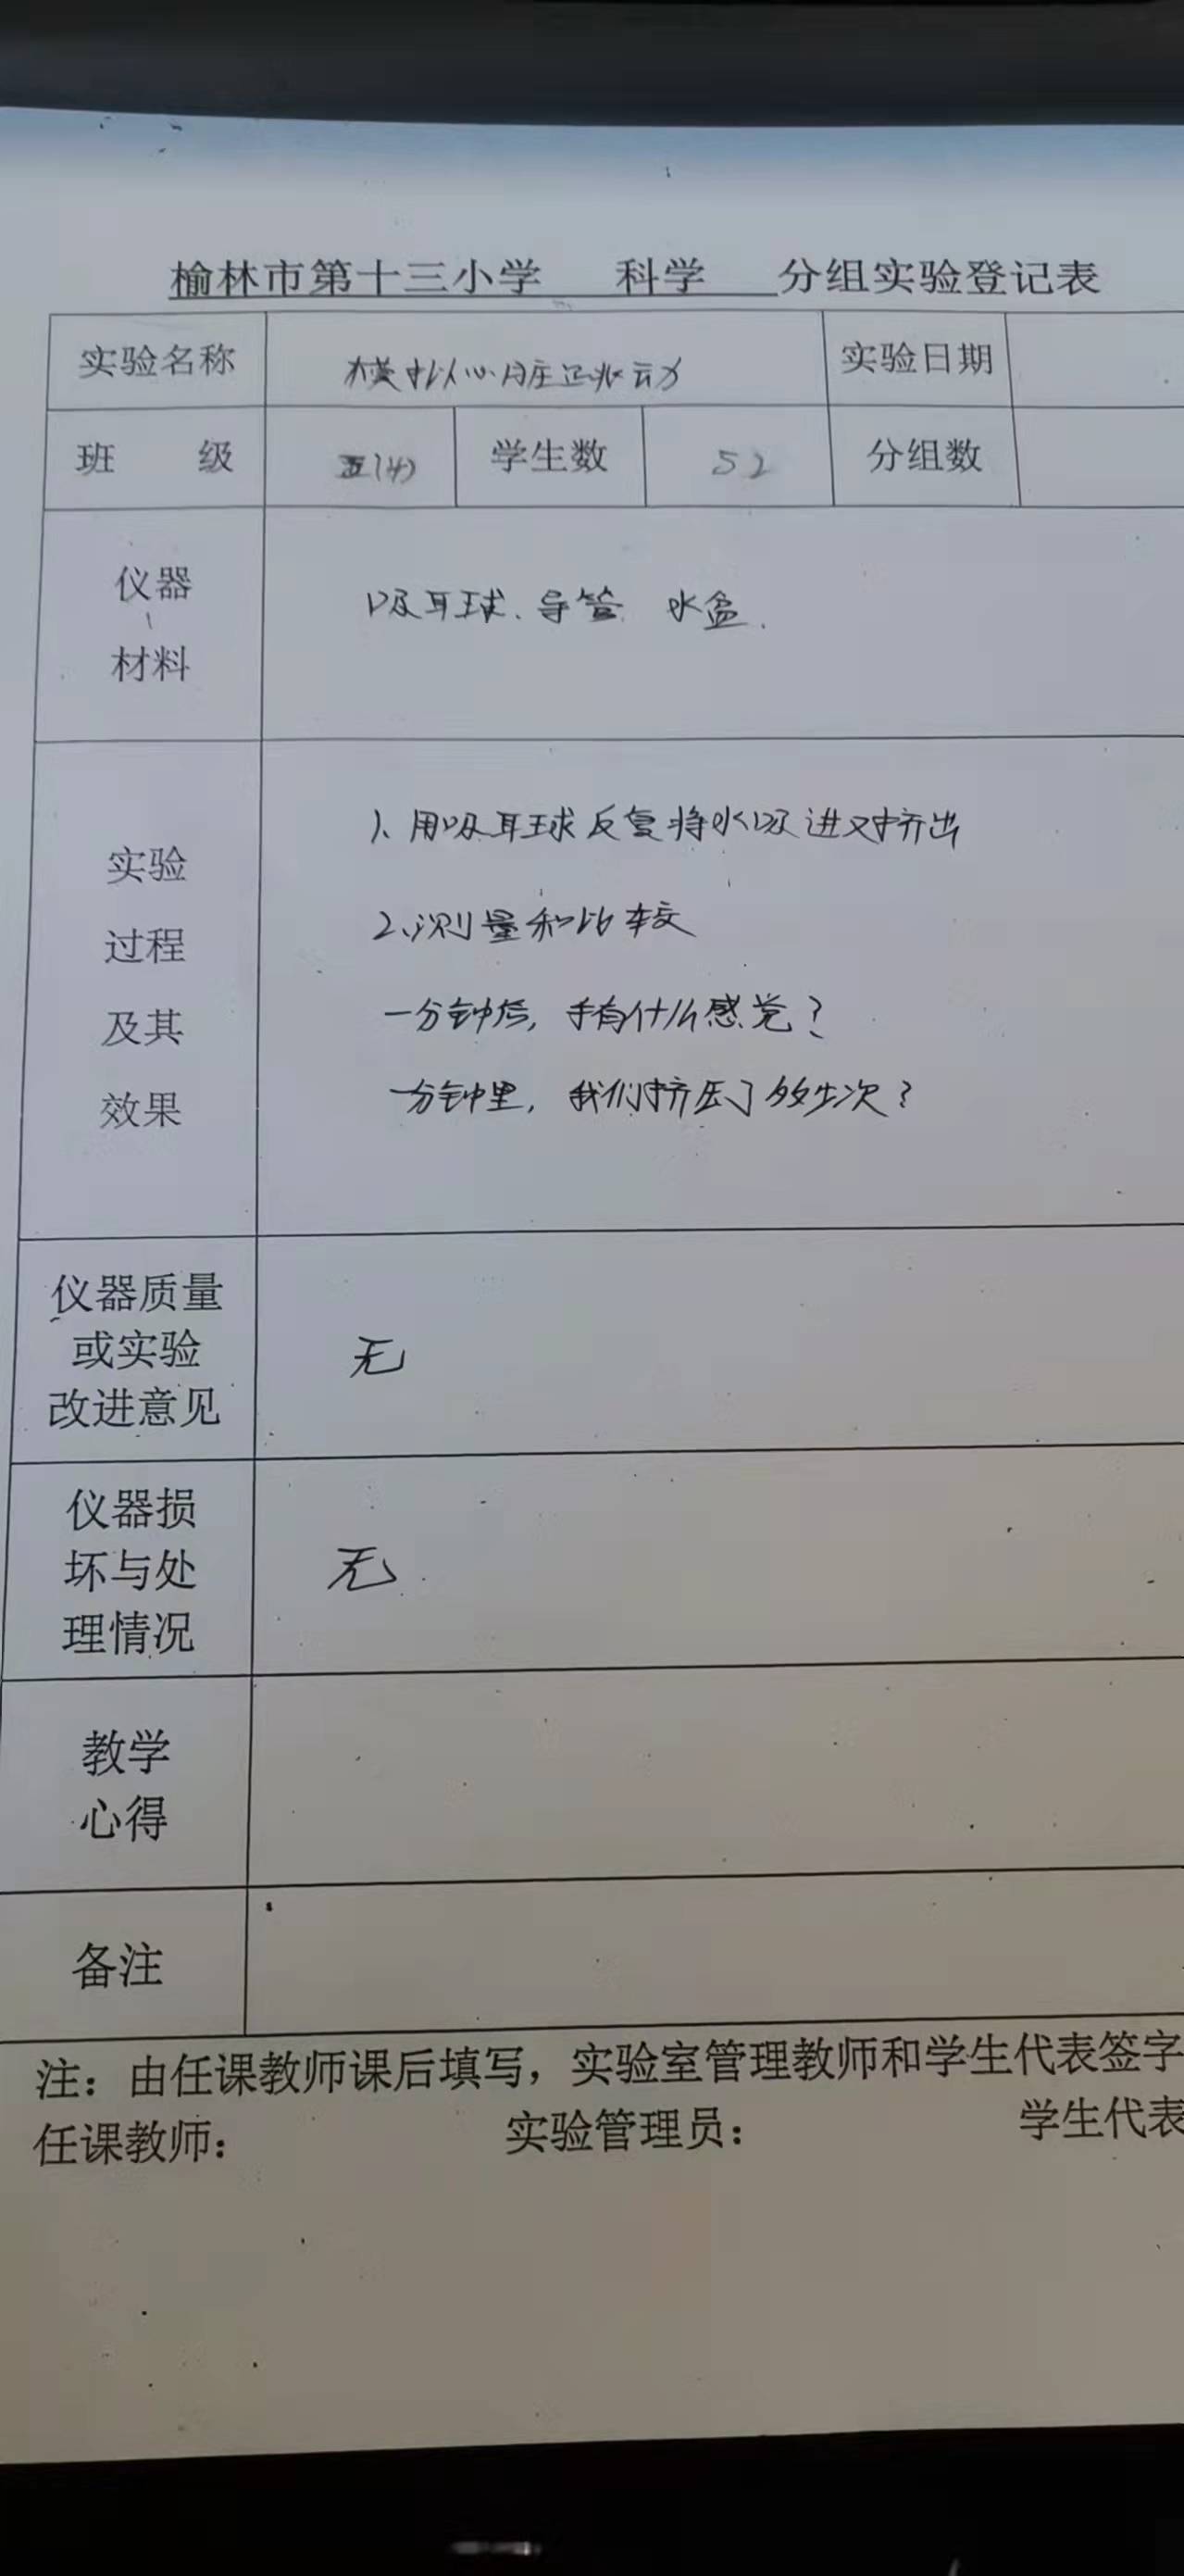 榆林市第十三小学 科学 分组实验登记表
实验名称 模拟心脏正状动 实验日期
班 级 五(4) 学生数 52 分组数
仪器
材料
吸耳球、导管 水盆.
实验
过程
及其
效果
1、用吸耳球反复将水吸进又挤出
2、测量和比较
一分钟后,手有什么感觉?
一分钟里,我们挤压了多少次?
仪器质量
或实验
改进意见
无
仪器损
坏与处
理情况
无
教学
心得
备注
注:由任课教师课后填写,实验室管理教师和学生代表签字
任课教师: 实验管理员: 学生代表